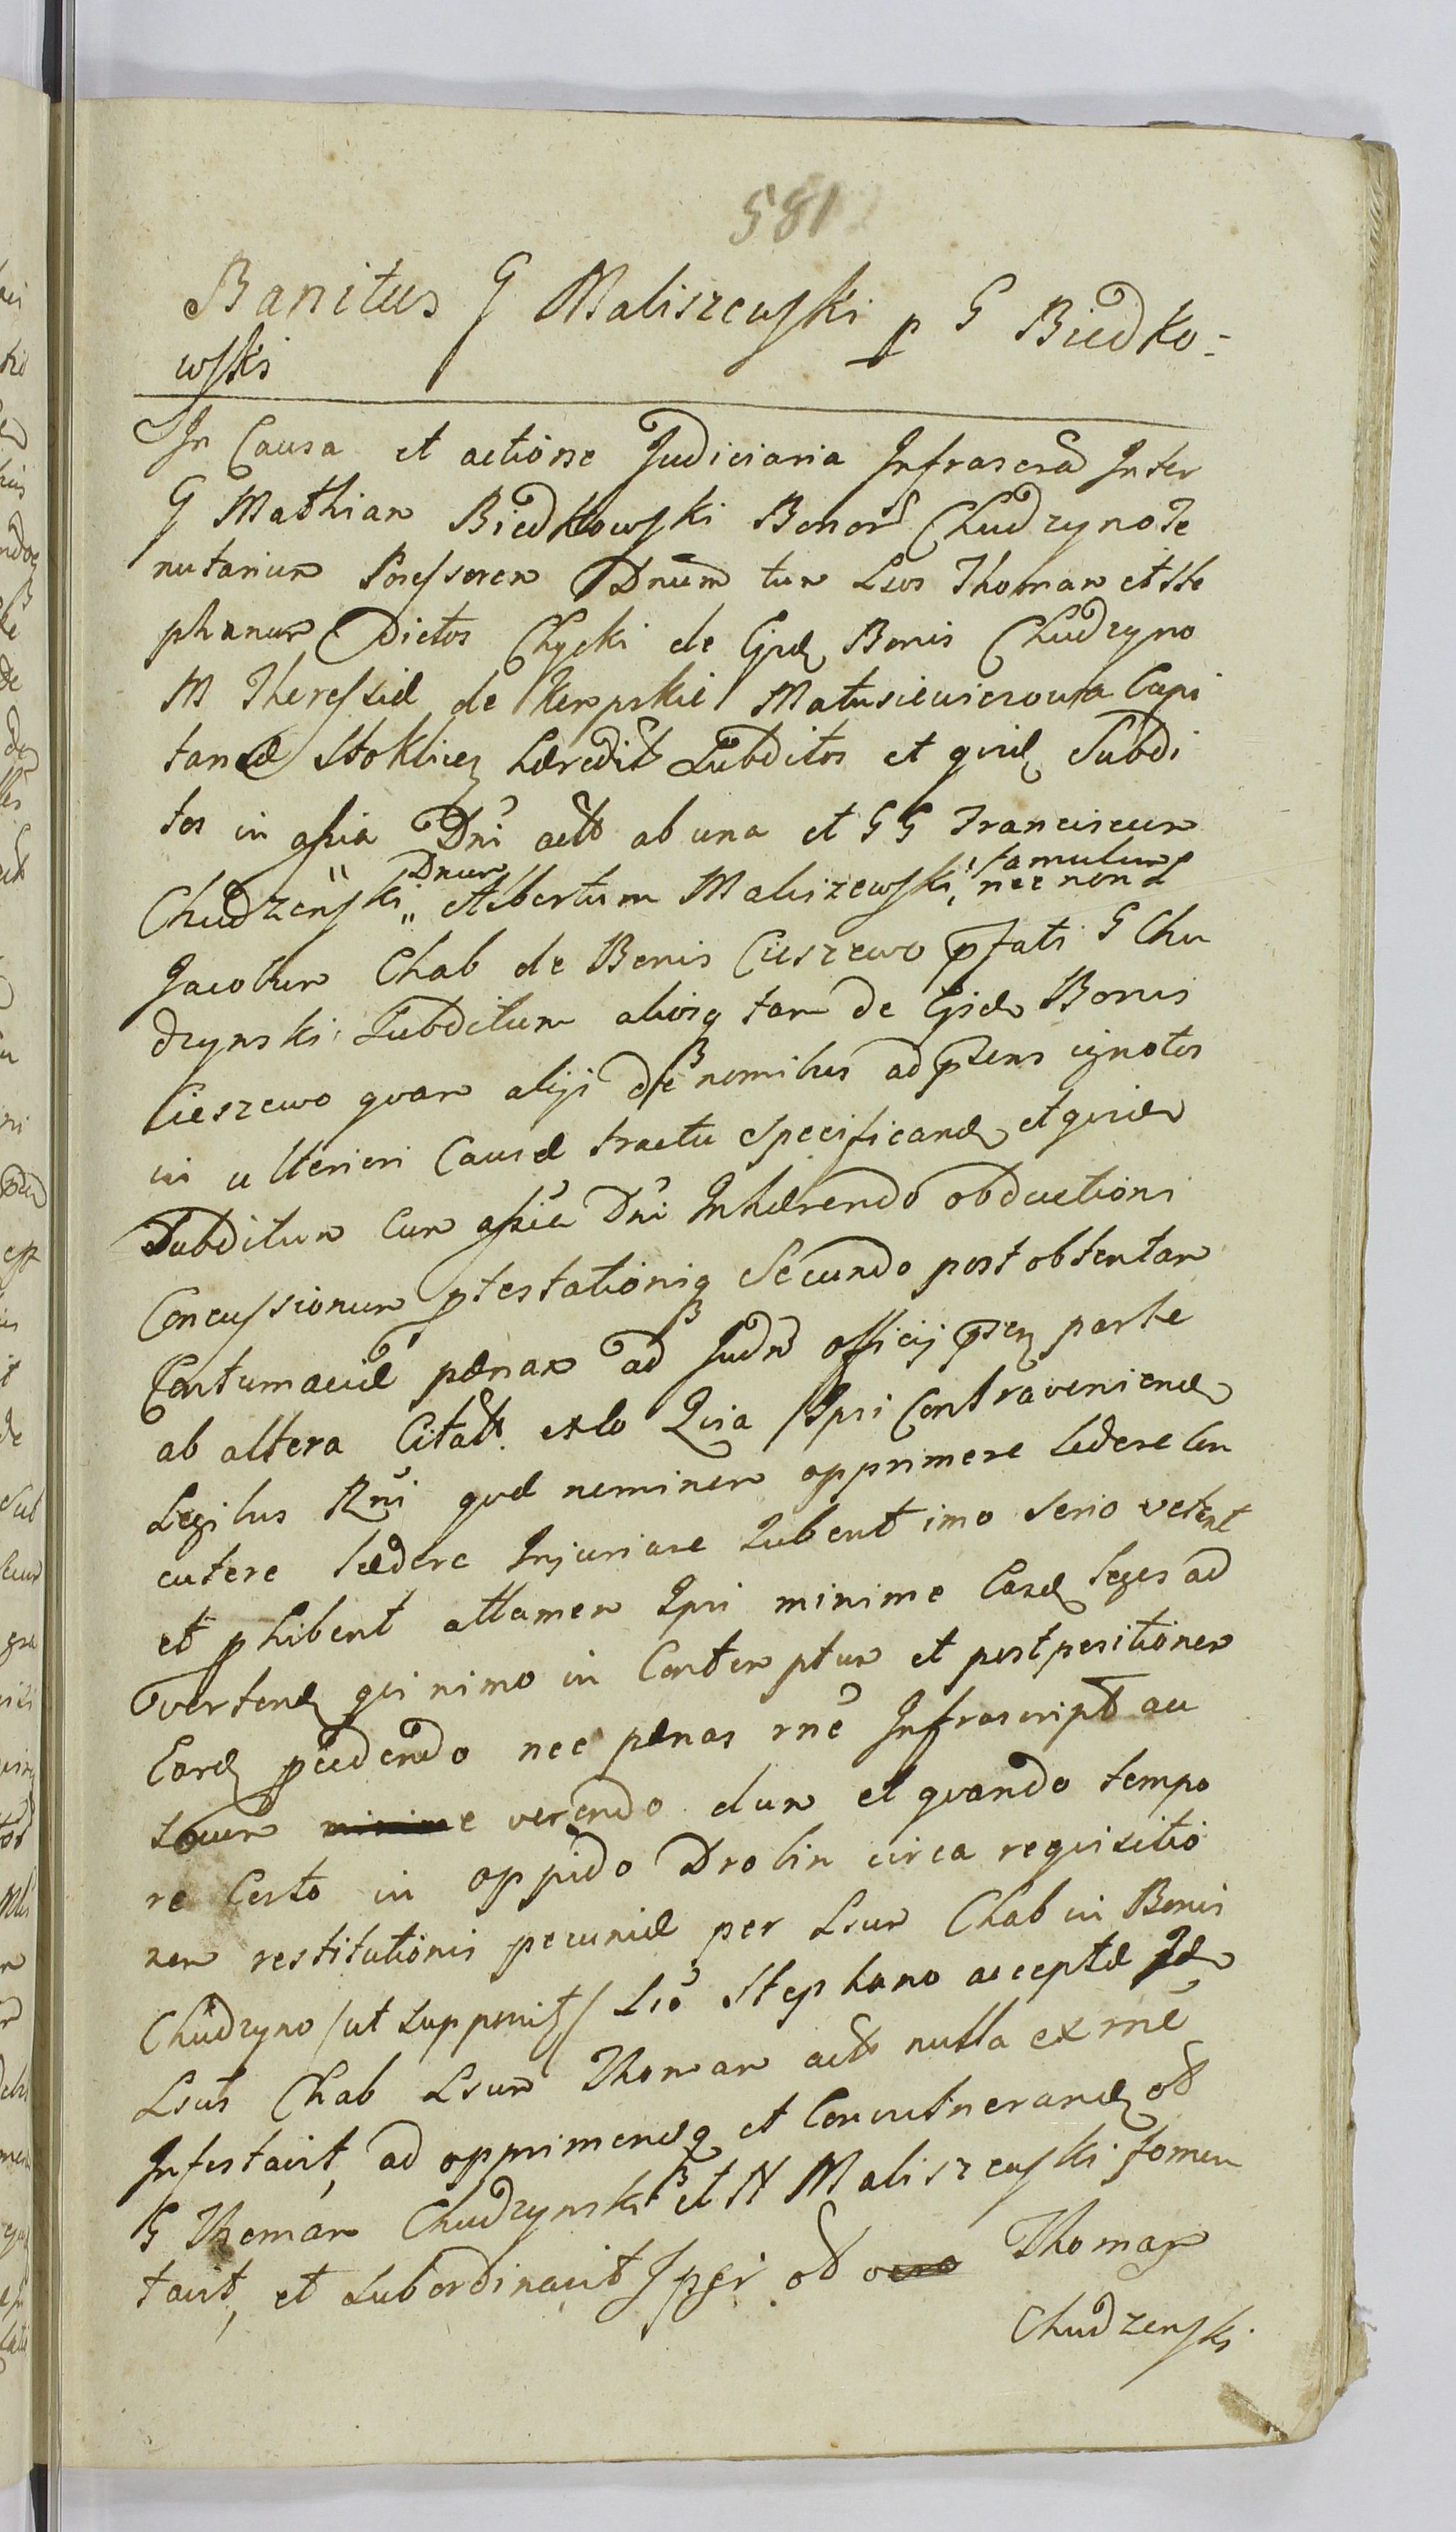 581
Banitus G Maliszewski p G Biedko-
wski
In Causa et actione Judiciaria Infrascrã Inter
G Mathiam Biedkowski Bonor Chudzyno Te
nutarium Possessorem Dnum tum Lsos Thomam et Ste
phanum Dictos Chycki de Ejsd Bonis Chudzyno
M Theressiæ de Kempskie Matusiewiczowa Capi
taneæ Stoklicz hæredit Subditos et quid Subdi
tos in assia Dni act ab una et GG Franciscum
Chudzenski " Dnum Albertum Maliszewski, famulum nec non L
Jacobum Chab de Bonis Cieszewo pfati G Chu
dzynski Subditum aliosq tam de Ejsd Bonis
Cieszewo quam alijs de nomibus ad psens ignotos
in ulteriori Causæ tractu specificand et quid
Subditum Cum assia Dni Inhærendo obductioni
Concussionum ptestationiq Secundo post obtentam
Contumaciæ pænam ad Judm officij psen parte
ab altera Citat. exlo Quia Ipsi Contraveniend
Legibus Rni quæ neminem opprimere lædere Con
cutere lædere Injuriare Jubent imo serio vetant
et phibent attamen Ipsi minime Easd leges ad
vertend qui nimo in Contemptum et postpositionem
Eard pcedendo nec pænas rnê Infrascript au
sum minime verendo dum et quando tempo
re Certo in oppido Drobin circa requisitio
nem restitutionis pecuniæ per Lsum Chab in Bonis
Chudzyno /ut supponit/ Lso Stephano acceptæ Id
Lsus Chab Lsum Thomam act nulla ex rne
Infestavit, ad opprimendq et Convulnerand od
G Thomam Chudzynski et N Maliszewski fomen
tavit, et Subordinavit Ipsi od Thomas
Chudzenski